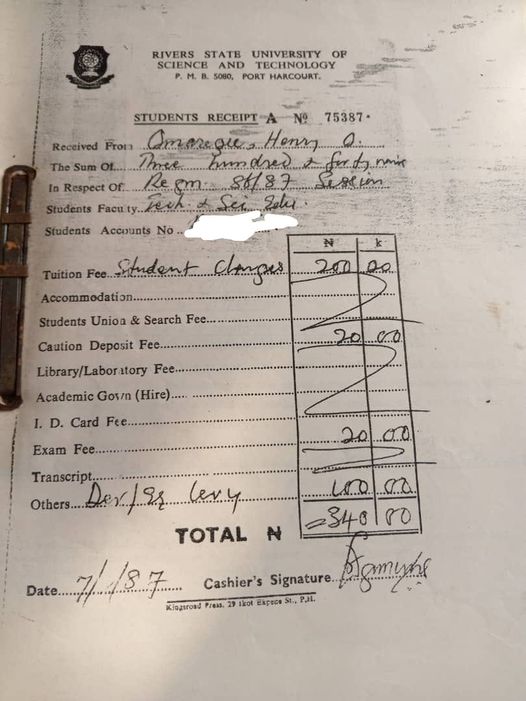 RIVERS STATE UNIVERSITY OF
SCIENCE AND TECHNOLOGY
P. M. B. 5080, PORT HARCOURT.
STUDENTS RECEIPT A Nº 75387
Received From Omaregie, Henry O.
The Sum Of Three hundred & forty naira
In Respect Of Regn. 86/87 Session
Students Faculty Tech. & Sci Edu.
Students Accounts No
N k
Tuition Fee Student Charges 200 00
Accommodation
Students Union & Search Fee
Caution Deposit Fee 20 00
Library/Laboratory Fee
Academic Gown (Hire)
I. D. Card Fee
Exam Fee 20 00
Transcript
Others Dev/ levy 100 00
TOTAL N =340 00
Date 7/1/87 Cashier's Signature
Kingsroad Press, 29 Ikot Ekpene St., P.H.